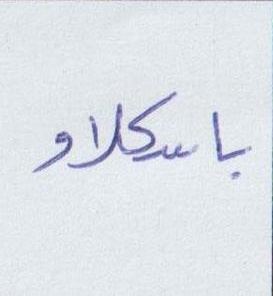 باسكلاو